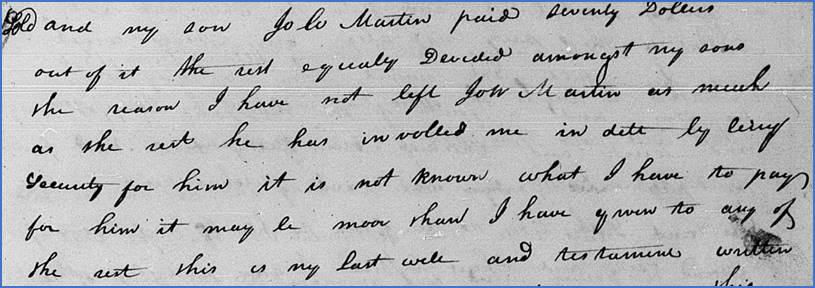 Sold and my son Job Martin paid seventy Dollers
out of it the rest equaly Decided amongst my sons
the reason I have not left Job Martin as much
as the rest he has involled me in dete by being
Security for him it is not known what I have to pay
for him it may be moor than I have given to any of
the rest this is my last will and testament written
this